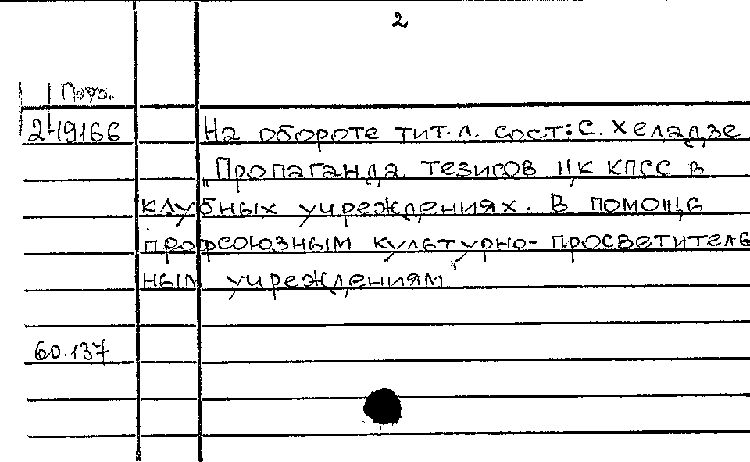 2
Груз.
2-19166
На обороте тит. л. сост: С. Хеладзе
„Пропаганда тезисов ЦК КПСС в
клубных учреждениях. В помощь
профсоюзным культурно-просветитель
ным учреждениям"
60.137